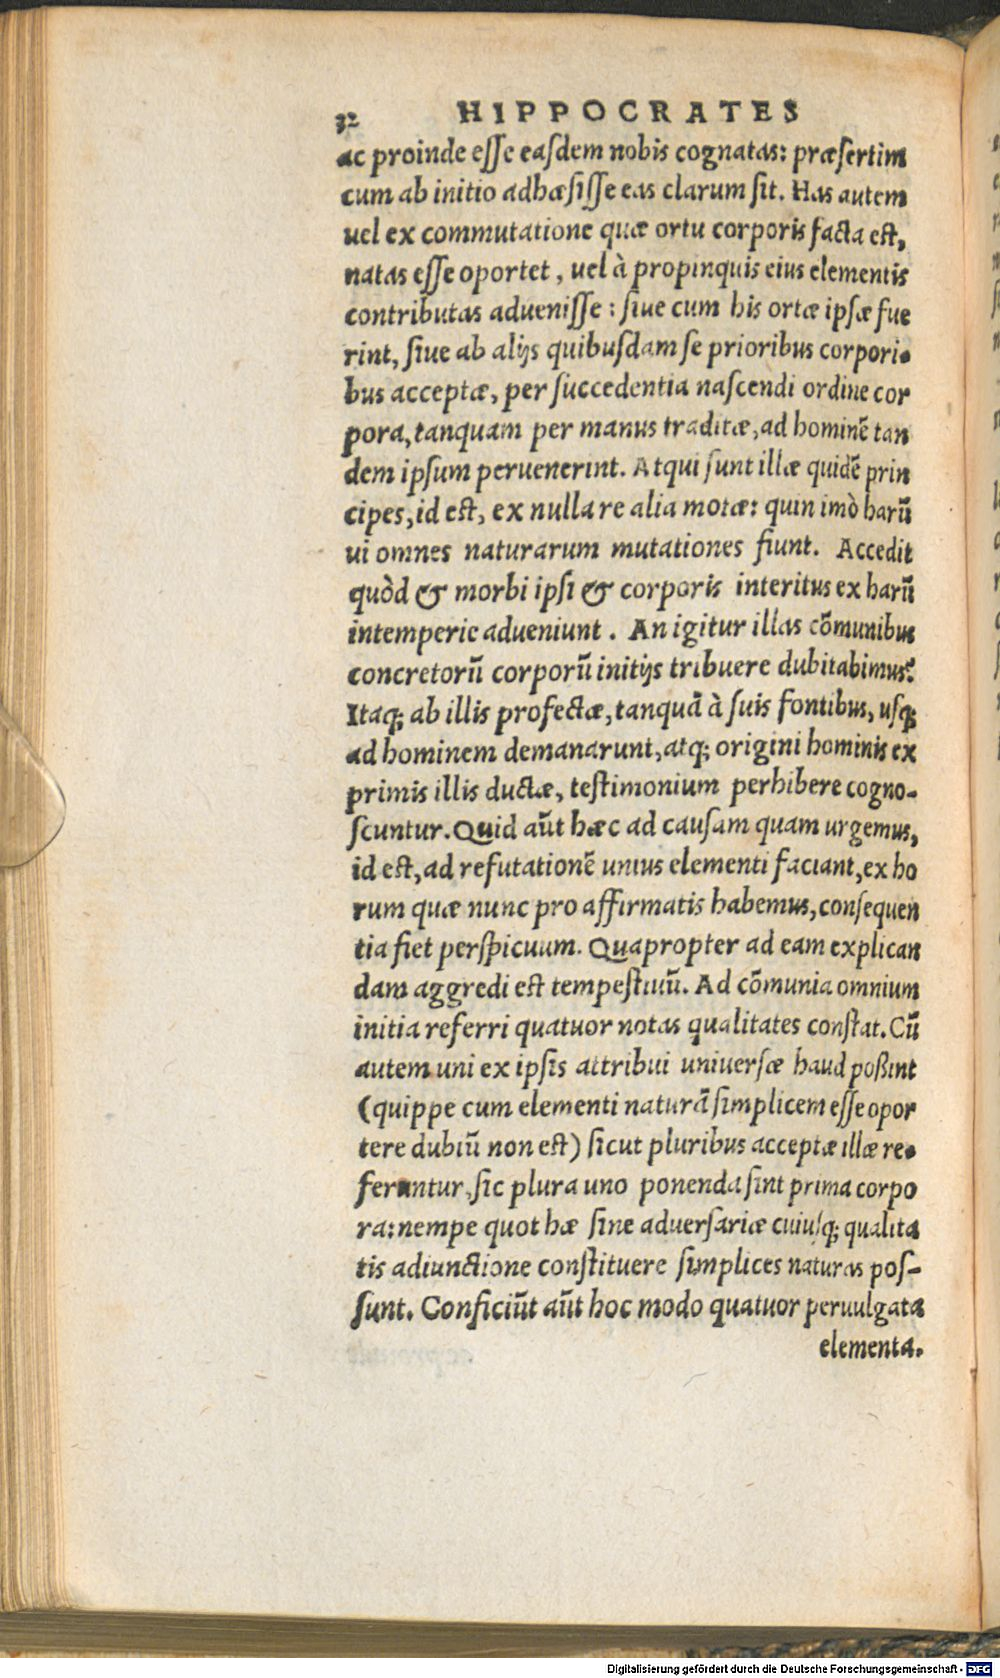 32 HIPPOCRATES
ac proinde eſſe eaſdem nobis cognatas: præſertim
cum ab initio adhæſiſſe eas clarum ſit. Has autem
uel ex commutatione quæ ortu corporis facta est,
natas eſſe oportet, uel à propinquis eius elementis
contributas adueniſſe: ſiue cum his ortæ ipſæ fue
rint, ſiue ab alijs quibuſdam ſe prioribus corpori-
bus acceptæ, per ſuccedentia naſcendi ordine cor
pora, tanquam per manus traditæ, ad hominẽ tan
dem ipſum peruenerint. Atqui ſunt illæ quidẽ prin
cipes, id est, ex nulla re alia motæ: quin imò harũ
ui omnes naturarum mutationes fiunt. Accedit
quòd & morbi ipſi & corporis interitus ex harũ
intemperie adueniunt. An igitur illas cõmunibus
concretorũ corporũ initijs tribuere dubitabimus?
Itaq; ab illis profectæ, tanquã à ſuis fontibus, uſq;
ad hominem demanarunt, atq; origini hominis ex
primis illis ductæ, teſtimonium perhibere cogno-
ſcuntur. Quid aũt hæc ad cauſam quam urgemus,
id est, ad refutationẽ unius elementi faciant, ex ho
rum quæ nunc pro affirmatis habemus, conſequen
tia fiet perſpicuum. Quapropter ad eam explican
dam aggredi est tempeſtiuũ. Ad cõmunia omnium
initia referri quatuor notas qualitates conſtat. Cũ
autem uni ex ipſis attribui uniuerſæ haud poßint
(quippe cum elementi naturã ſimplicem eſſe opor
tere dubiũ non est) ſicut pluribus acceptæ illæ re-
feruntur, ſic plura uno ponenda ſint prima corpo
ra: nempe quot hæ ſine aduerſariæ cuiuſq; qualita
tis adiunctione conſtituere ſimplices naturas poſ-
ſunt. Conficiũt aũt hoc modo quatuor peruulgata
elementa.
Digitalisierung gefördert durch die Deutsche Forschungsgemeinschaft - DFG